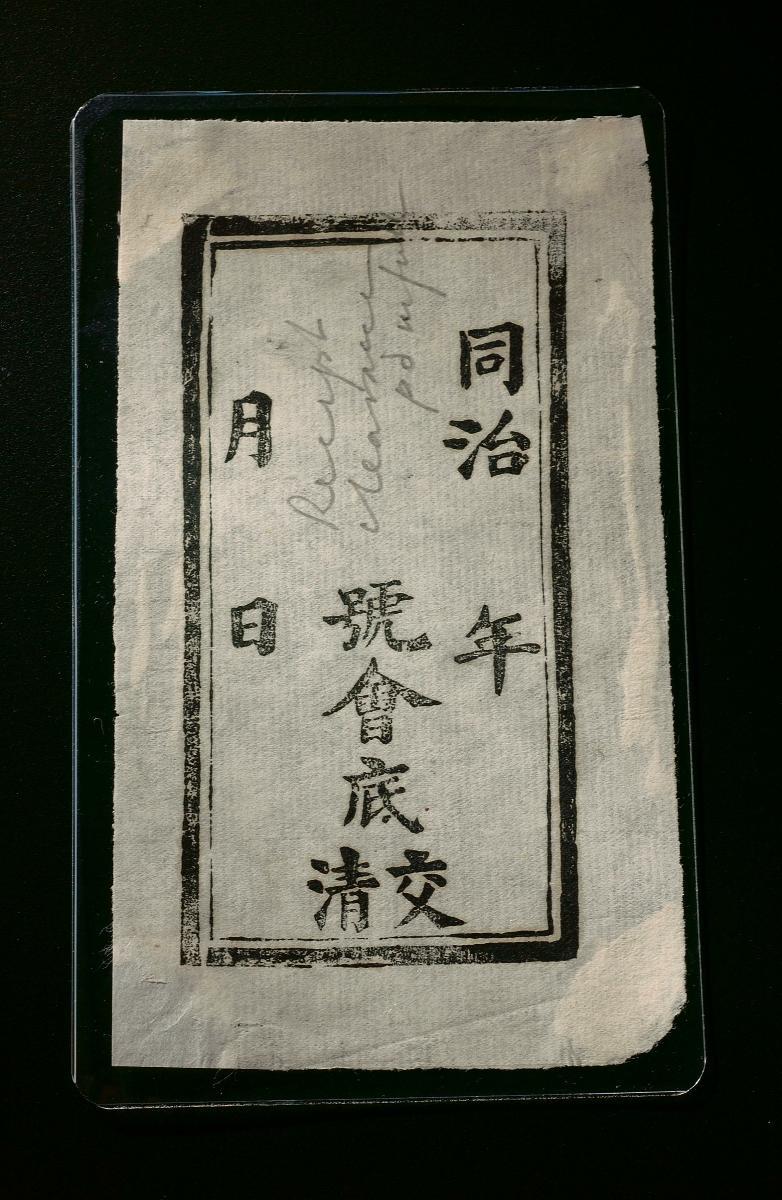 同治　　年
號會底交清
月　　日
Receipt
clearance
pd up